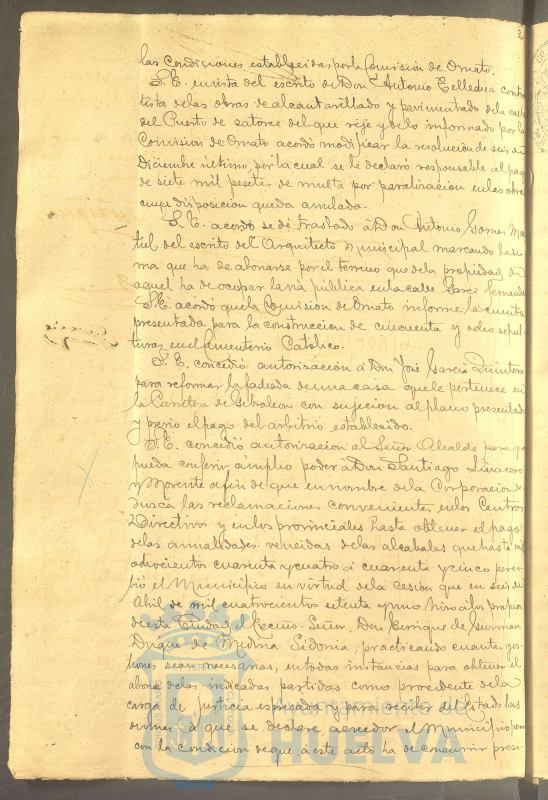 las Condiciones establecidas por la Comision de Ornato.
S. E. en vista del escrito de Don Antonio Telledrea contra
tista de las obras de alcantarillado y pavimentado de la calle
del Puerto de catorce del que rije y de lo informado por la
Comision de Ornato acordó modificar la resolucion de seis de
Diciembre último, por la cual se le declaró responsable al pago
de siete mil pesetas de multa por paralizacion en las obras
cuya disposicion queda anulada.
S. E. acordó se dé traslado á Don Antonio Gomez Ma
tel del escrito del Arquitecto Municipal marcando la su
ma que ha de abonarse por el terreno que de la propiedad de
aquel ha de ocupar la via pública en la calle Garci Fernandez
S. E. acordó que la Comision de Ornato informe la cuenta
presentada para la construccion de cincuenta y ocho sepul-
turas en el Cementerio Católico.
S. E. concedió autorizacion á Don José Garcia Quintero
para reformar la fachada de una casa que le pertenece en
la Carretera de Gibraleon con sujecion al plano presentado
y previo el pago del arbitrio establecido.
S. E. concedió autorizacion al Señor Alcalde para que
pueda conferir ámplio poder á Don Santiago
y Morente á fin de que en nombre de la Corporacion de-
duzca las reclamaciones convenientes en los Centros
Directivos y en los provinciales hasta obtener el pago
de las anualidades vencidas de las alcabalas que hasta mil
ochocientos cuarenta y cuatro á cuarenta y cinco perci-
bió el Municipio en virtud de la cesion que en seis de
Abril de mil cuatrocientos setenta y uno hizo á los propios
de esta Ciudad el Excmo. Señor Don Enrique de Guzman
Duque de Medina Sidonia, practicando cuantas ges-
tiones sean necesarias, en todas instancias para obtener el
abono de las indicadas partidas como procedente de la
carga de justicia espresada y para recibir del Estado las
sumas á que se declare acreedor el Municipio pero
con la condicion de que á este acto ha de concurrir preci-
Ayuntamiento de
HUELVA